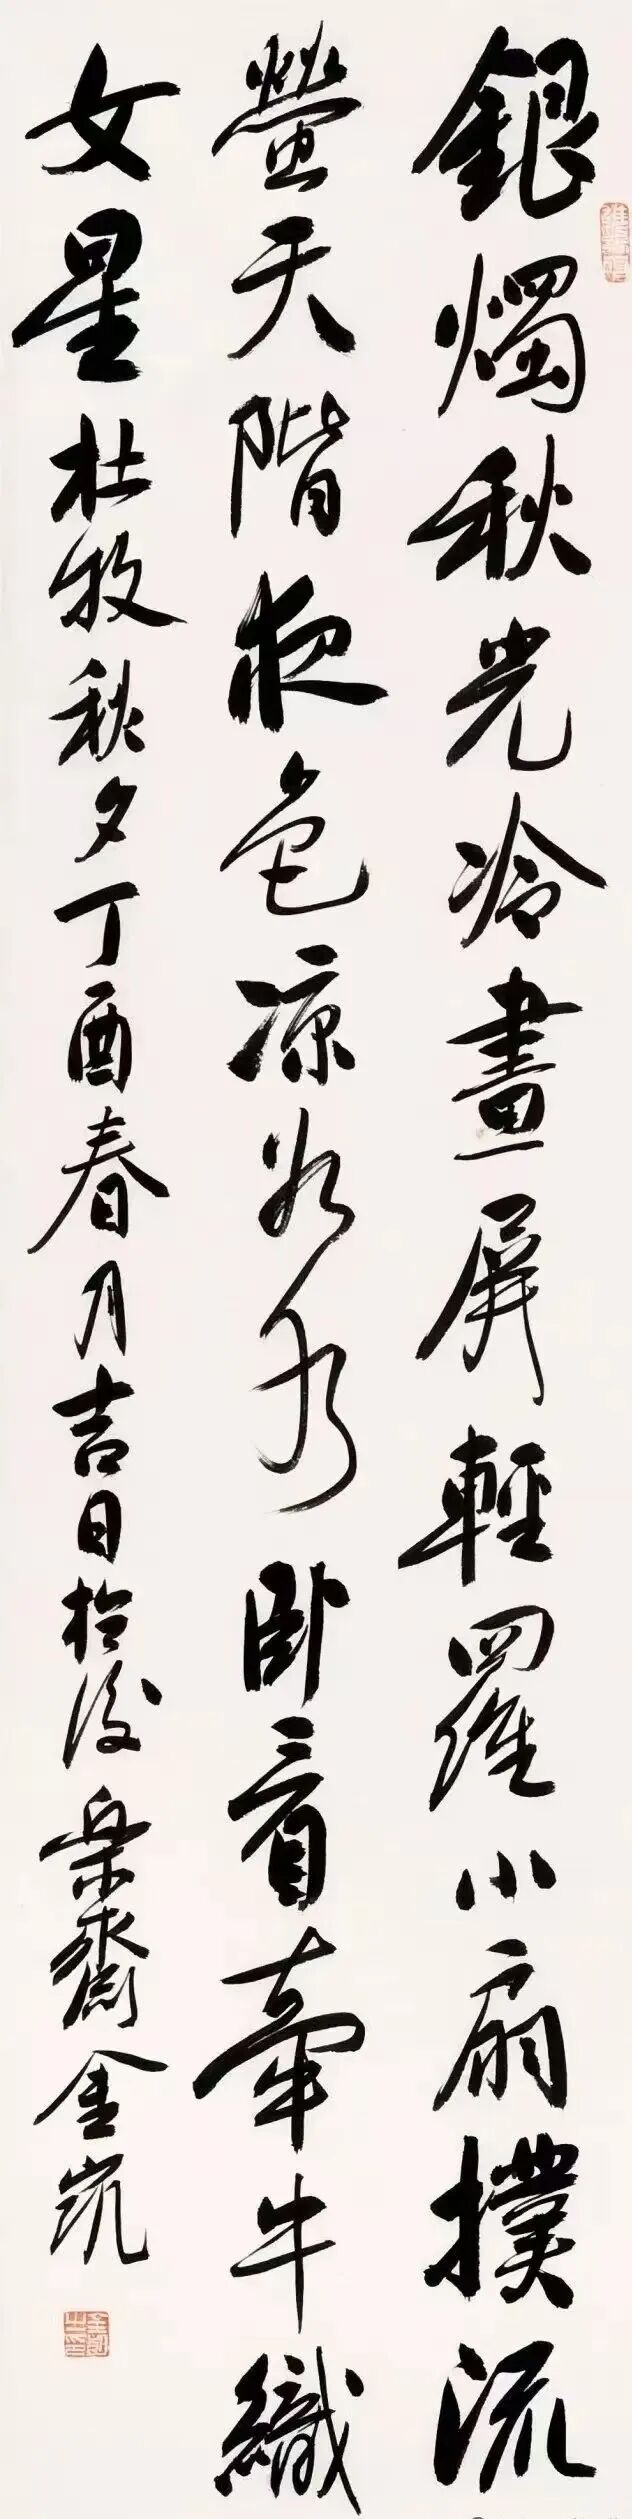 銀燭秋光冷畫屏輕羅小扇撲流
螢天階夜色凉如水臥看牽牛織
女星杜牧秋夕丁酉春月吉日於後樂齋金凱